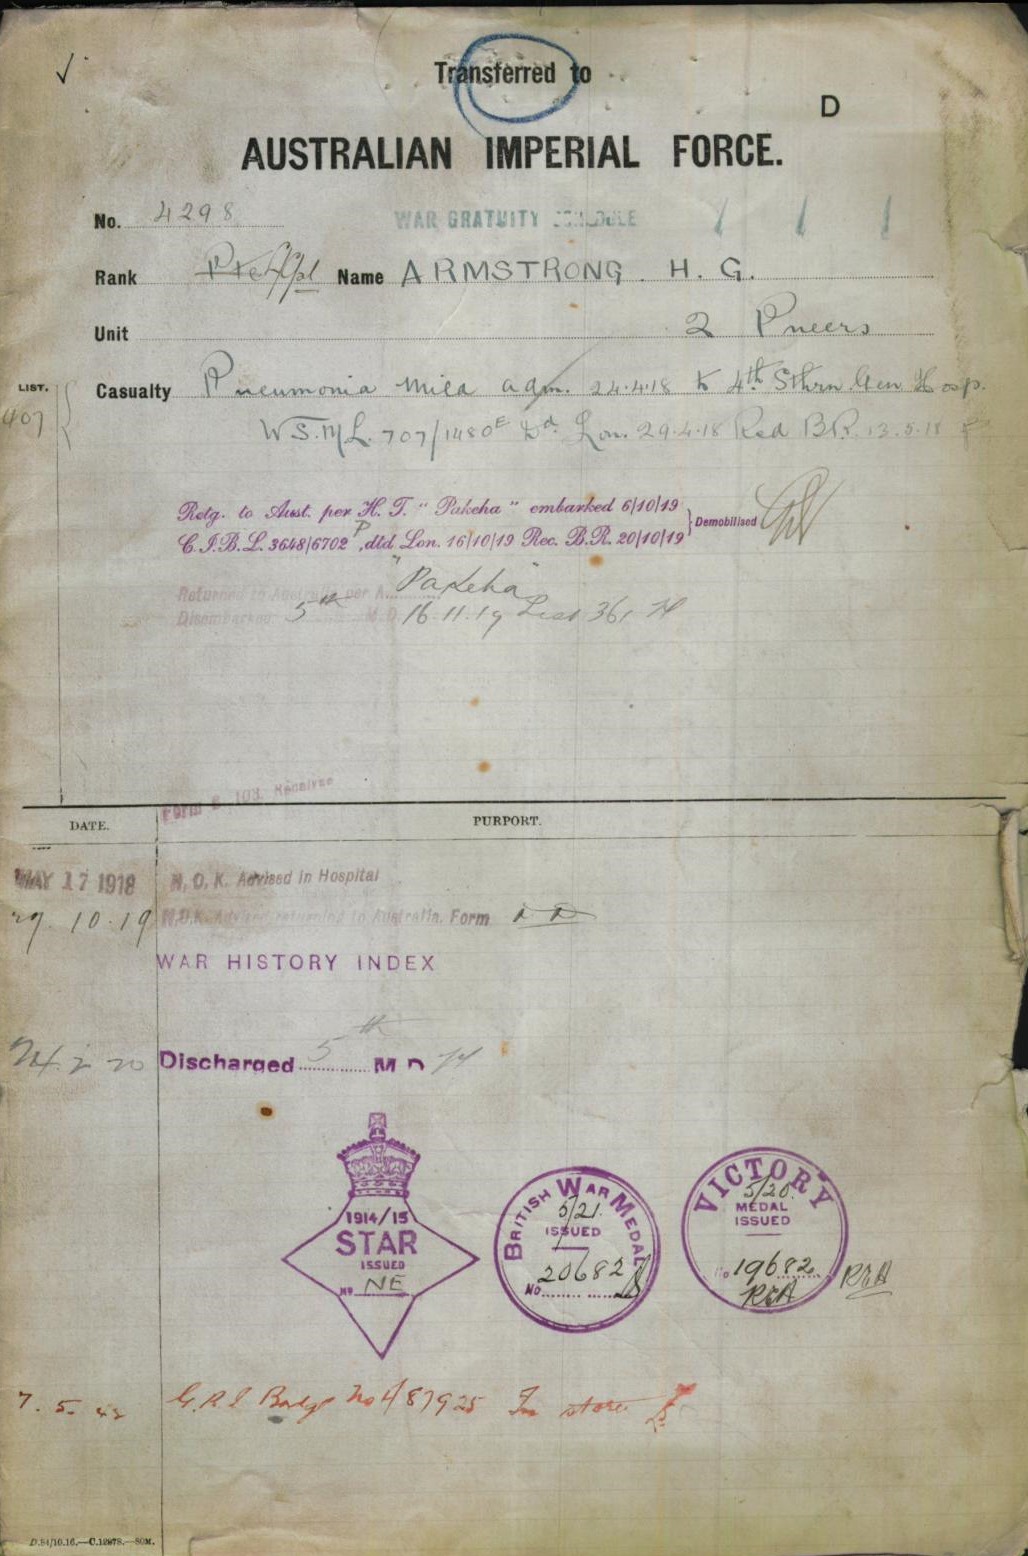 Transferred to
D
AUSTRALIAN IMPERIAL FORCE.
No. 4298
WAR GRATUITY SCHEDULE
Rank Pte Name ARMSTRONG. H. G.
Unit 2 Pneers
LIST. 407
Casualty Pneumonia Mild adm. 24.4.18 to 4th Sthrn Gen Hosp.
W.S.M.L. 707/1480E Dd. Lon. 29.4.18 Recd B.R. 13.5.18
Retg. to Aust. per H. T. "Pakeha" embarked 6/10/19
C.I.B.L. 3648/6702 P, dtd Lon. 16/10/19 Rec. B.R. 20/10/19 } Demobilised
Returned to Australia per "Pakeha"
Disembarked 5th M.D. 16.11.19 List 361
Form B. 103. Received
DATE. PURPORT.
MAY 17 1918 N.O.K. Advised in Hospital
29.10.19 N.O.K. Advised returning to Australia. Form
WAR HISTORY INDEX
24.2.20 Discharged 5th M D
1914/15
STAR
ISSUED
No NE
BRITISH WAR MEDAL
5/21
ISSUED
No 20682
VICTORY
5/20.
MEDAL
ISSUED
No 19682
RZA
RZA
7.5.42 G.R.S Badge No 4/87925 In store
D.84/10.16.—C.12878.—80M.